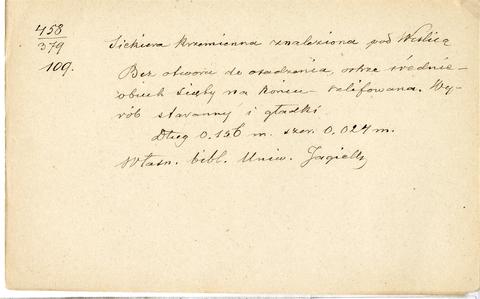 458
379
109.
Siekiera krzemienna znaleziona pod Wiślicą
Bez otworu do osadzenia, ostrze
na końcu szlifowana. Wy-
rób staranny i gładki.
Dług. 0,156 m. szer. 0,024 m.
Własn. bibl. Uniw. Jagiell.